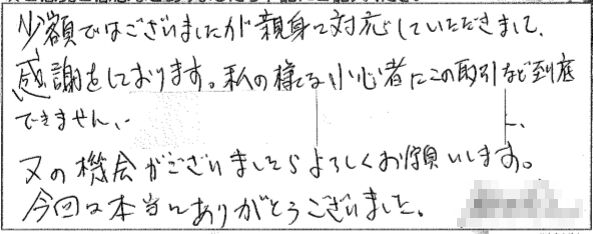 少額ではございましたが親身に対応していただきまして、
感謝をしております。私の様な小心者にこの取引など到底
できません。
又の機会がございましたらよろしくお願いします。
今回は本当にありがとうございました。